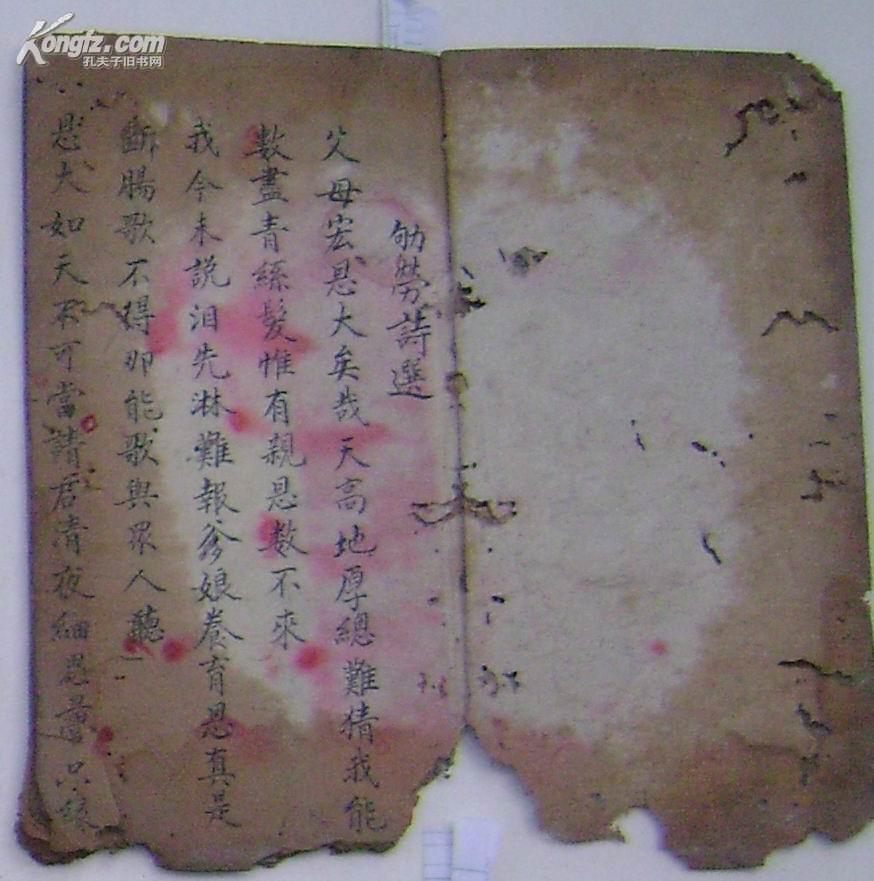 Kongfz.com
孔夫子旧书网
劬勞詩選
父母宏恩大矣哉天高地厚總難猜我能
數盡青絲髮惟有親恩数不來
我今未說泪先淋難報爹娘養育恩真是
斷腸歌不得卯能歌與眾人聽
恩大如天不可當請君清夜細思量只緣